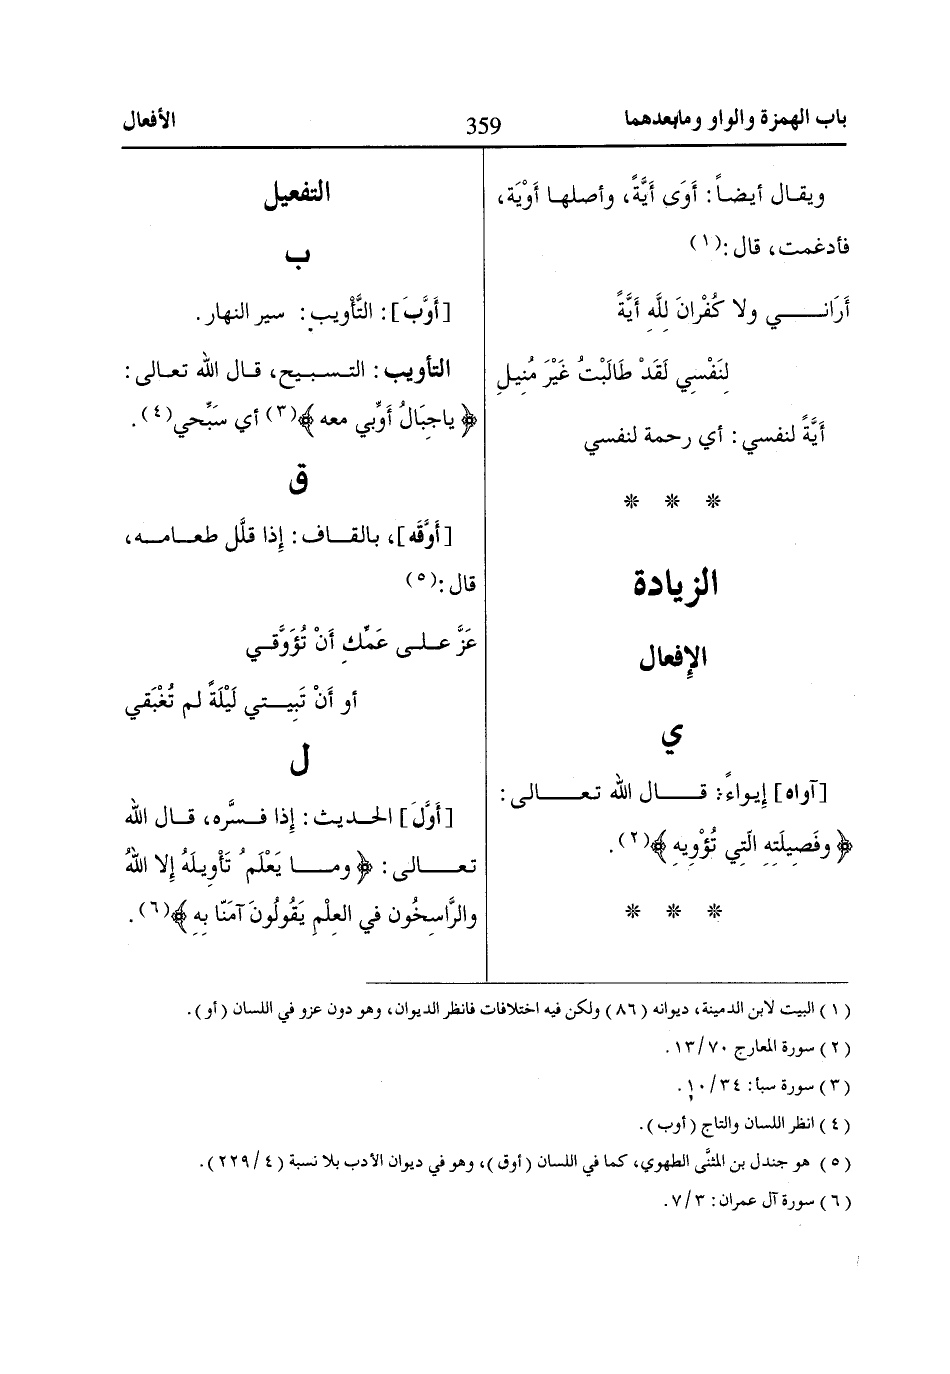 باب الهمزة والواو ومابعدهما
359
الأفعال
ويقال أيضاً: أَوَى أَيَّةً، وأصلها أَوْيَة،
فأدغمت، قال:(١)
أَرَانــي ولا كُفْرَانَ للَّهِ أَيَّةً
لِنَفْسِي لَقَدْ طَالَبْتُ غَيْرَ مُنِيلِ
أَيَّةً لنفسي: أي رحمة لنفسي
* * *
الزيادة
الإفعال
ي
[آواه] إيواءً: قــال الله تعــالى:
﴿وفَصِيلَتِهِ الَتِي تُؤْوِيهِ﴾(٢).
* * *
التفعيل
ب
[أوَّبَ]: التَّأْوِيب: سير النهار.
التأويب: التسبيح، قال الله تعالى:
﴿ياجِبَالُ أَوِّبي معه﴾(٣) أي سَبِّحي(٤).
ق
[أوَّقَه]، بالقاف: إِذا قلَّل طعامه،
قال:(٥)
عَزَّ علـى عَمِّكِ أَنْ تُؤَوَّقي
أو أَنْ تَبِيـتي لَيْلَةً لم تُغْبَقي
ل
[أوَّلَ] الحديث: إِذا فسَّره، قال الله
تعــالى: ﴿ومــا يَعْلَمُ تَأْوِيلَهُ إِلا اللهُ
والرَّاسِخُون في العِلْمِ يَقُولُونَ آمَنَّا بِهِ﴾(٦).
(١) البيت لابن الدمينة، ديوانه (٨٦) ولكن فيه اختلافات فانظر الديوان، وهو دون عزو في اللسان (أو).
(٢) سورة المعارج ٧٠/١٣.
(٣) سورة سبأ: ٣٤/١٠.
(٤) انظر اللسان والتاج (أوب).
(٥) هو جندل بن المثنَّى الطهوي، كما في اللسان (أوق)، وهو في ديوان الأدب بلا نسبة (٤/٢٢٩).
(٦) سورة آل عمران: ٣/٧.